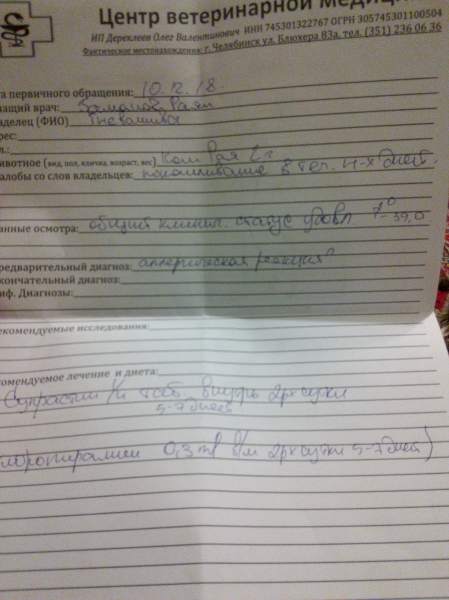 Центр ветеринарной медиц
ИП Дереклеев Олег Валентинович ИНН 745301322767 ОГРН 305745301100504
Фактическое местонахождение: г. Челябинск ул. Блюхера 83а, тел. (351) 236 06 36
та первичного обращения: 10.12.18.
чащий врач:
аделец (ФИО)
рес:
л.:
ивотное (вид, пол, кличка, возраст, вес) Кот Рая 2 г
алобы со слов владельцев: покашливание в теч. 4-х дней.
нные осмотра: общий клинич. статус удовл Т° - 39,0
редварительный диагноз: аллергическая реакция?
кончательный диагноз:
иф. Диагнозы:
екомендуемые исследования:
комендуемое лечение и диета:
Супрастин ¼ таб. внутрь 2р х сутки
5-7 дней
хлоропирамин 0,3 мл в/м 2р х сутки 5-7 дней)